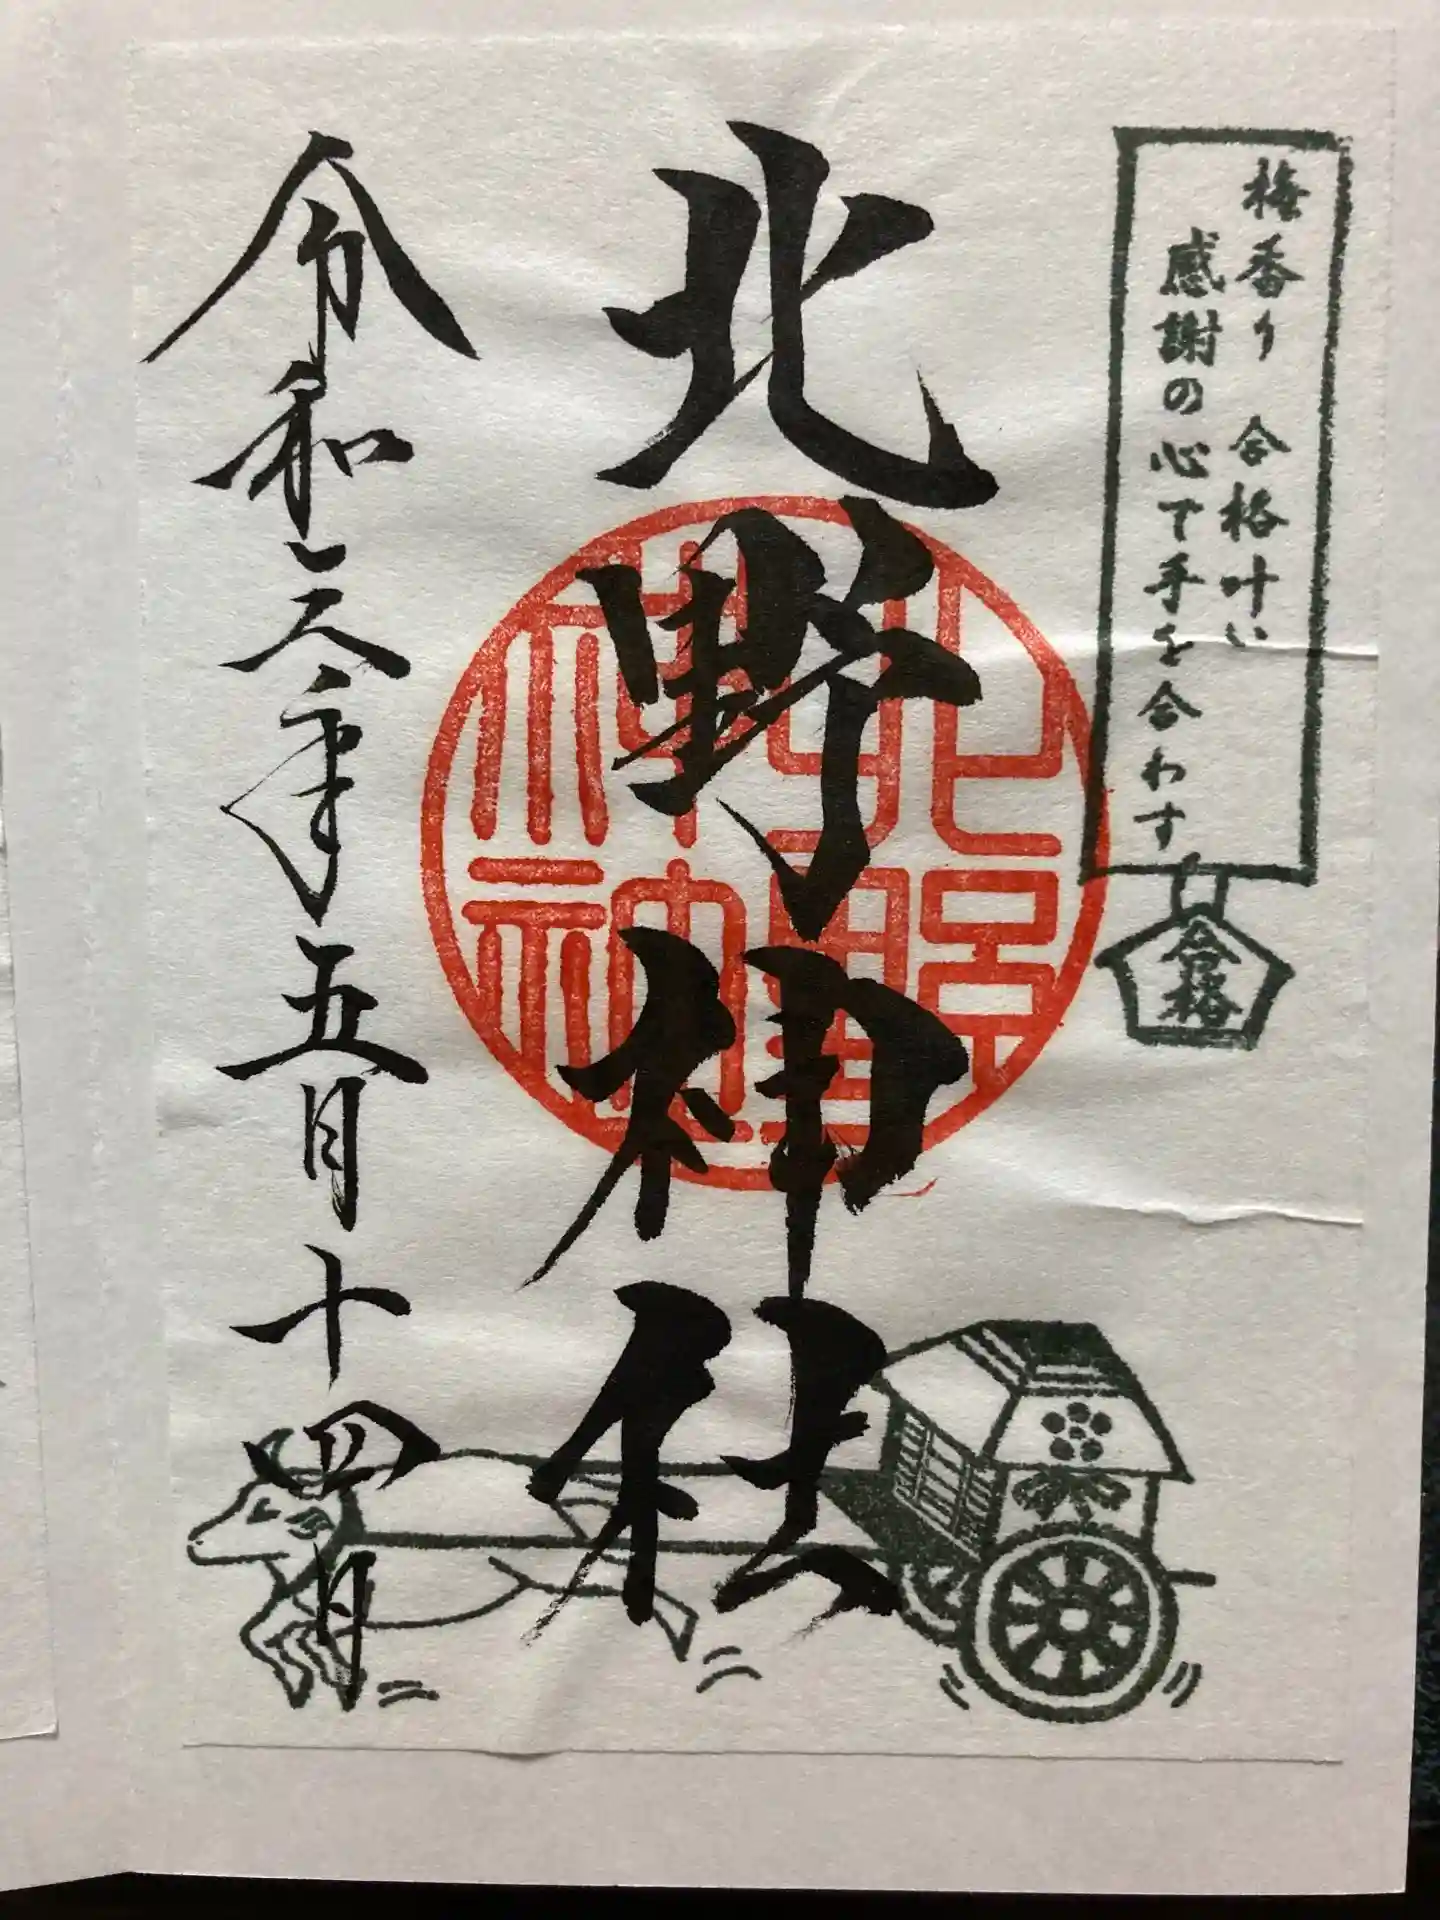 梅香り 合格叶い
感謝の心で手を合わす
合格
北野神社
令和年五月十四日